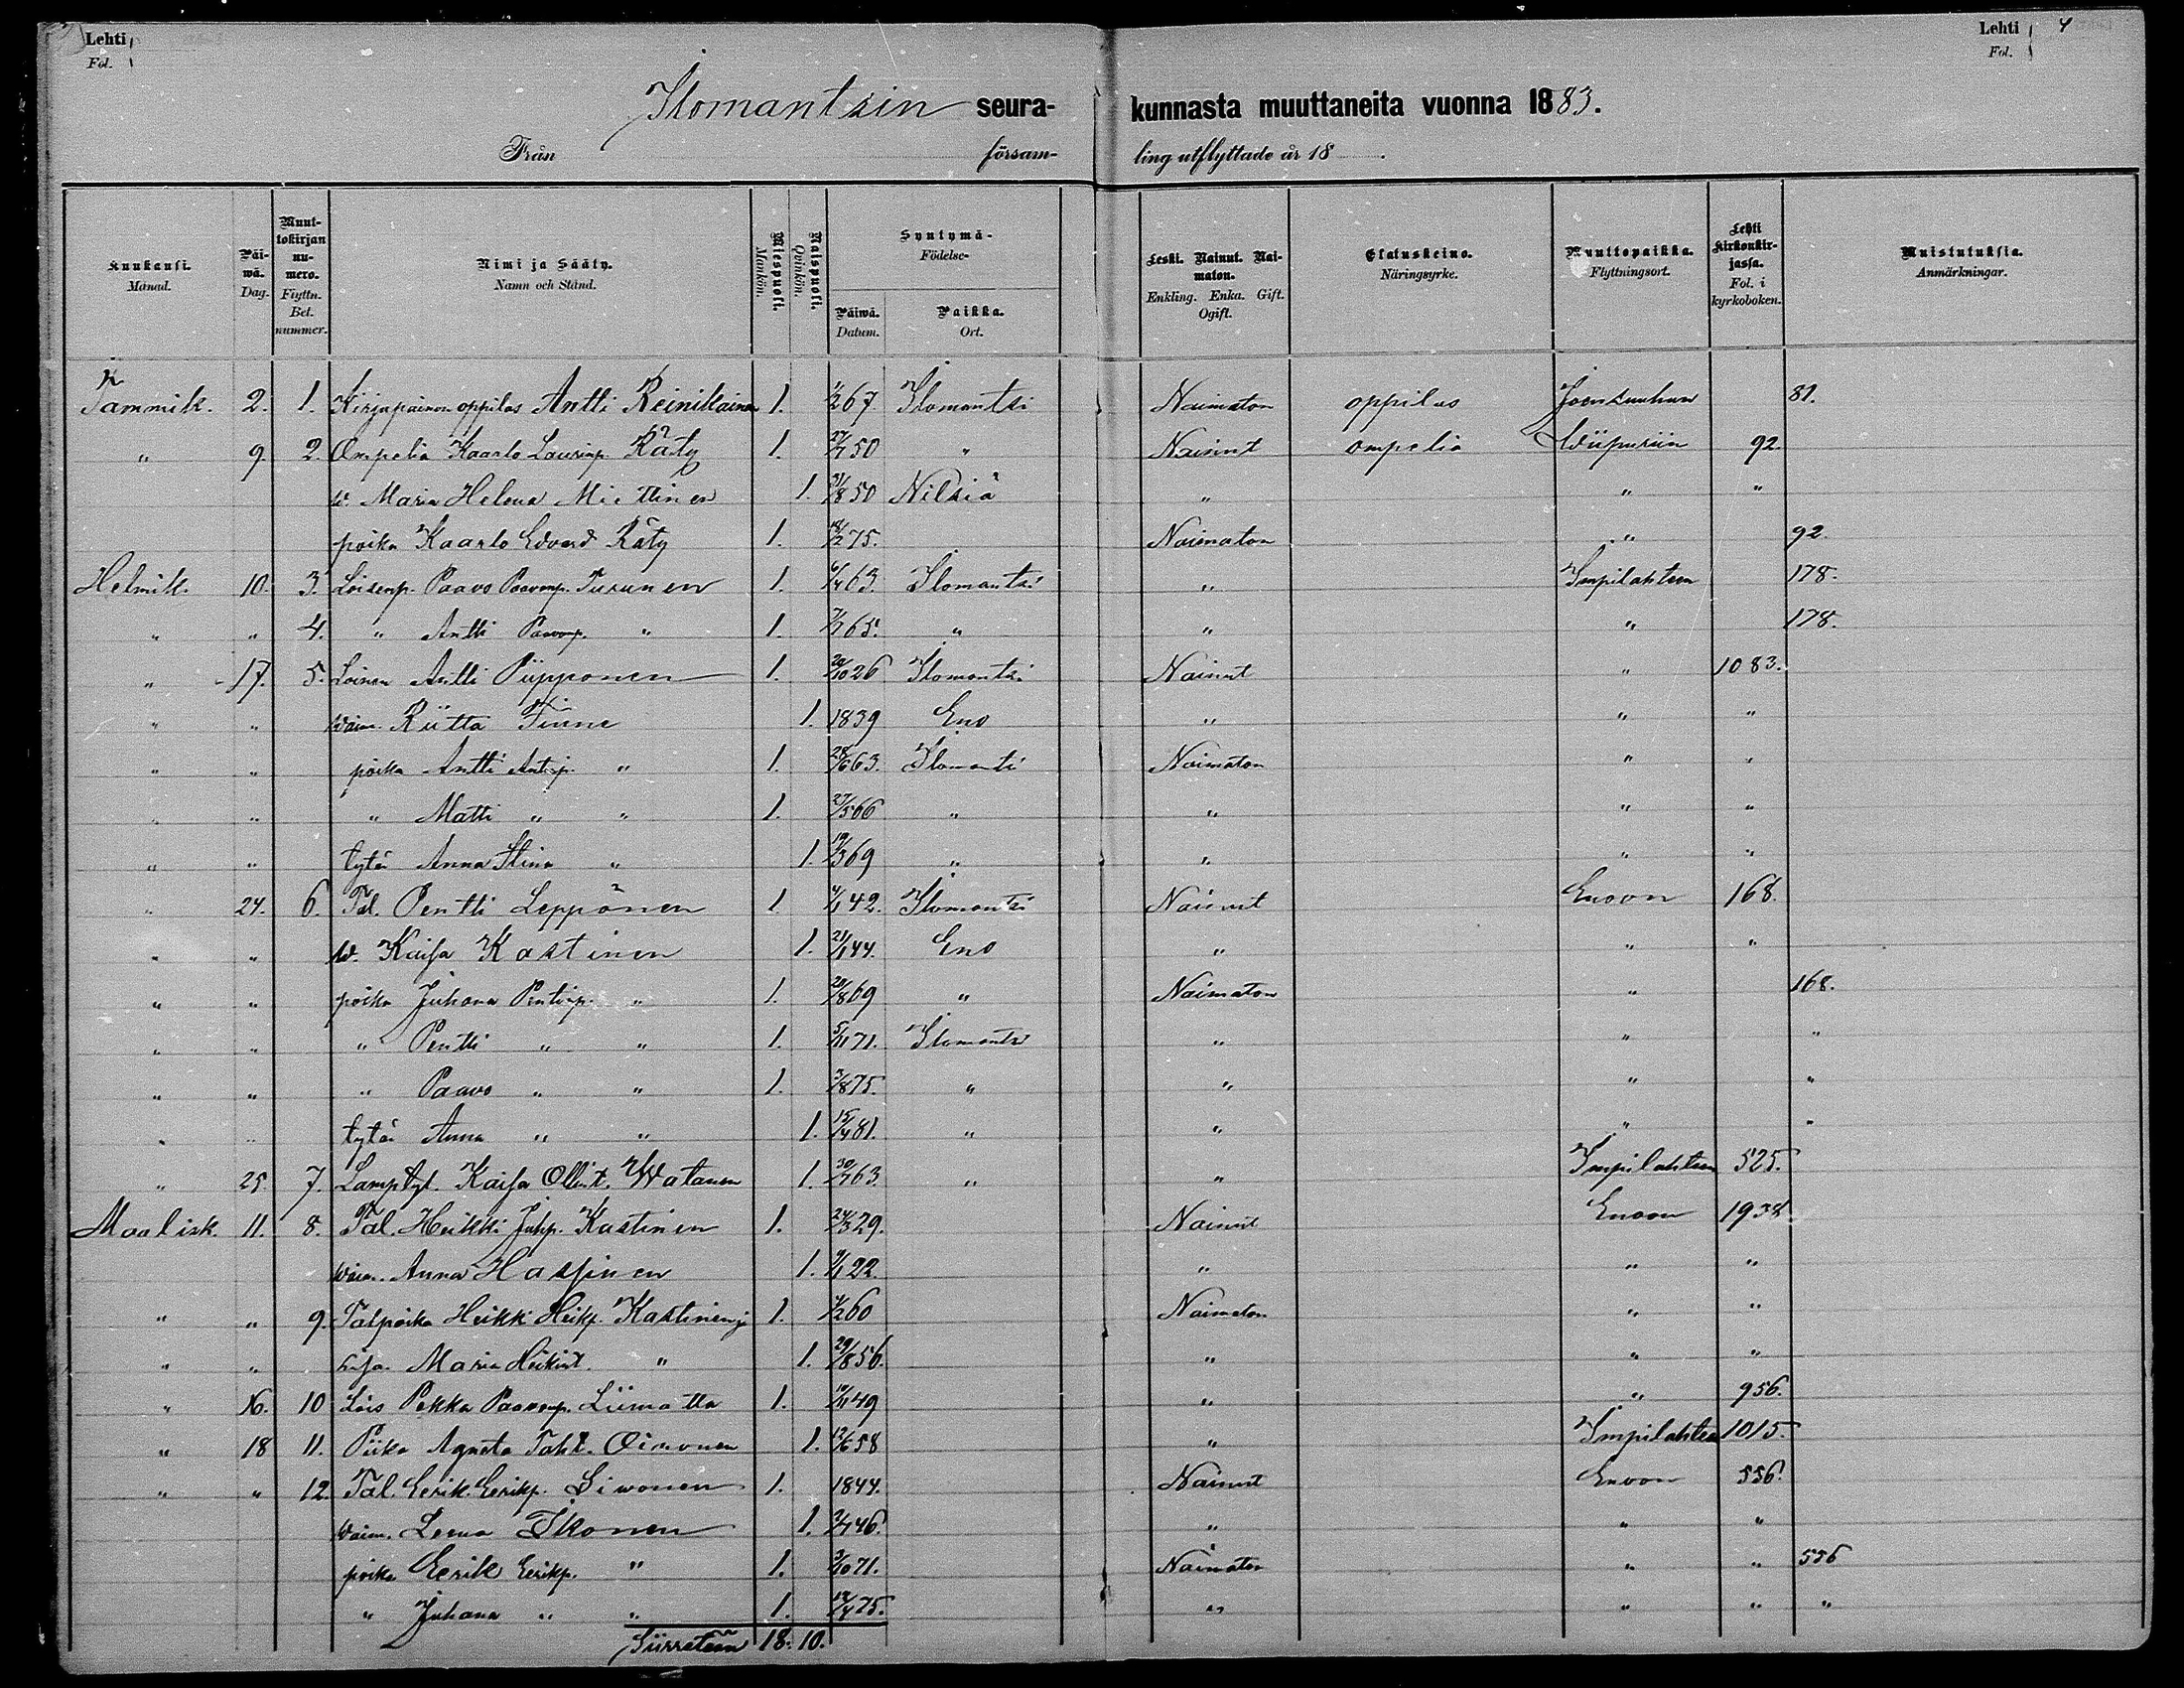 Lehti
Fol.
Lehti 4
Fol.
Ilomantsin seura- kunnasta muuttaneita vuonna 1883.
Från försam- ling utflyttade år 18 .
Kuukausi. Månad.
Päi-wä. Dag.
Muut-tokirjan nu-mero. Flyttn. Bet. nummer.
Nimi ja Sääty. Namn och Stånd.
Miespuoli. Mankön.
Naispuoli. Qvinkön.
Syntymä- Födelse-
Päiwä. Datum.
Paikka. Ort.
Leski. Nainut. Nai-maton. Enkling. Enka. Gift. Ogift.
Elatuskeino. Näringsyrke.
Muuttopaikka. Flyttningsort.
Lehti kirkonkir-jassa. Fol. i kyrkoboken.
Muistutuksia. Anmärkningar.
Tammik. 2. 1. Kirjapainon oppilas Antti Reinikainen 1. 1/2 67. Ilomantsi Naimaton oppilas Joensuuhun 81.
" 9. 2. Ompelia Kaarlo Laurinp. Räty 1. 27/7 50 " Nainut ompelia Wiipuriin 92.
w. Maria Helena Miettinen 1. 31/8 50 Nilsiä " " "
poika Kaarlo Edvard Räty 1. 18/2 75. Naimaton " 92.
Helmik. 10. 3. Loisenp. Paavo Paavonp. Turunen 1. 6/4 63. Ilomantsi " Impilahteen 178.
" " 4. " Antti Paavonp. " 1. 7/7 65. " " " 178.
" 17. 5. Loinen Antti Piipponen 1. 20/10 26 Ilomantsi Nainut " 1083.
" " waim. Riitta Tinne 1. 1839 Eno " " "
" " poika Antti Antinp. " 1. 28/6 63. Ilomantsi Naimaton " "
" " " Matti " " 1. 27/5 66 " " " "
" " tytär Anna Stina " 1. 19/3 69 " " " "
" 24. 6. Tal. Pentti Leppänen 1. 4/1 42. Ilomantsi Nainut Enoon 168.
" " w. Kaisa Kastinen 1. 21/1 44. Eno " " "
" " poika Juhana Pentinp. " 1. 20/8 69 " Naimaton " 168.
" " " Pentti " " 1. 5/11 71. Ilomantsi " " "
" " " Paavo " " 1. 3/8 75. " " " "
" " tytär Anna " " 1. 15/4 81. " " " "
" 25. 7. Lamptyt. Kaisa Ollint. Watanen 1. 30/7 63. " " Impilahteen 525.
Maalisk. 11. 8. Tal. Heikki Juhp. Kastinen 1. 24/3 29. Nainut Enoon 1938
waim. Anna Hassinen 1. 9/1 22. " " "
" " 9. Talpoika Heikki Heikp. Kastinen 1. 4/2 60 Naimaton " "
" " Maria Heikint. " 1. 29/8 56. " " "
" 16. 10 Lois Pekka Paavonp. Liimatta 1. 10/11 49 " " 956.
" 18 11. Piika Agneta Oinonen 1. 12/6 58 " Impilahteen 1015.
" " 12. Tal. Eerik. Eerikp. Siwonen 1. 1844. Nainut Enoon 556.
waim. Leena Ikonen 1. 2/7 46. " " "
poika Eerik Eerikp. " 1. 3/10 71. Naimaton " " 556
" Juhana " " 1. 12/4 75. " " " "
Siirretään 18. 10.